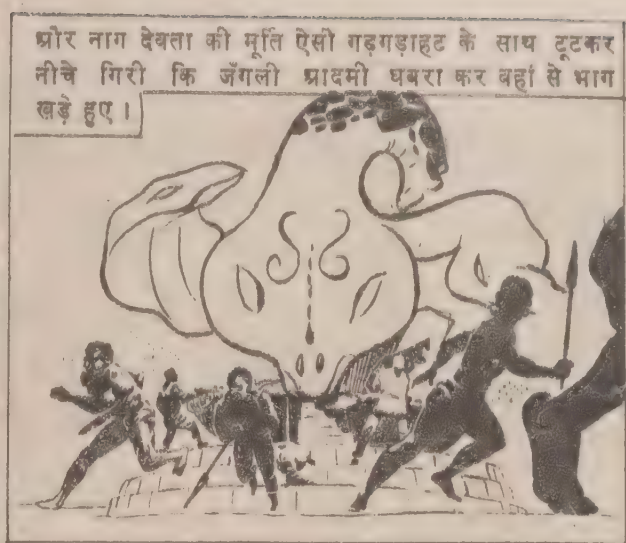 और नाग देवता की मूर्ति ऐसी गड़गड़ाहट के साथ टूटकर
नीचे गिरी कि जँगली आदमी घबरा कर वहां से भाग
खड़े हुए।